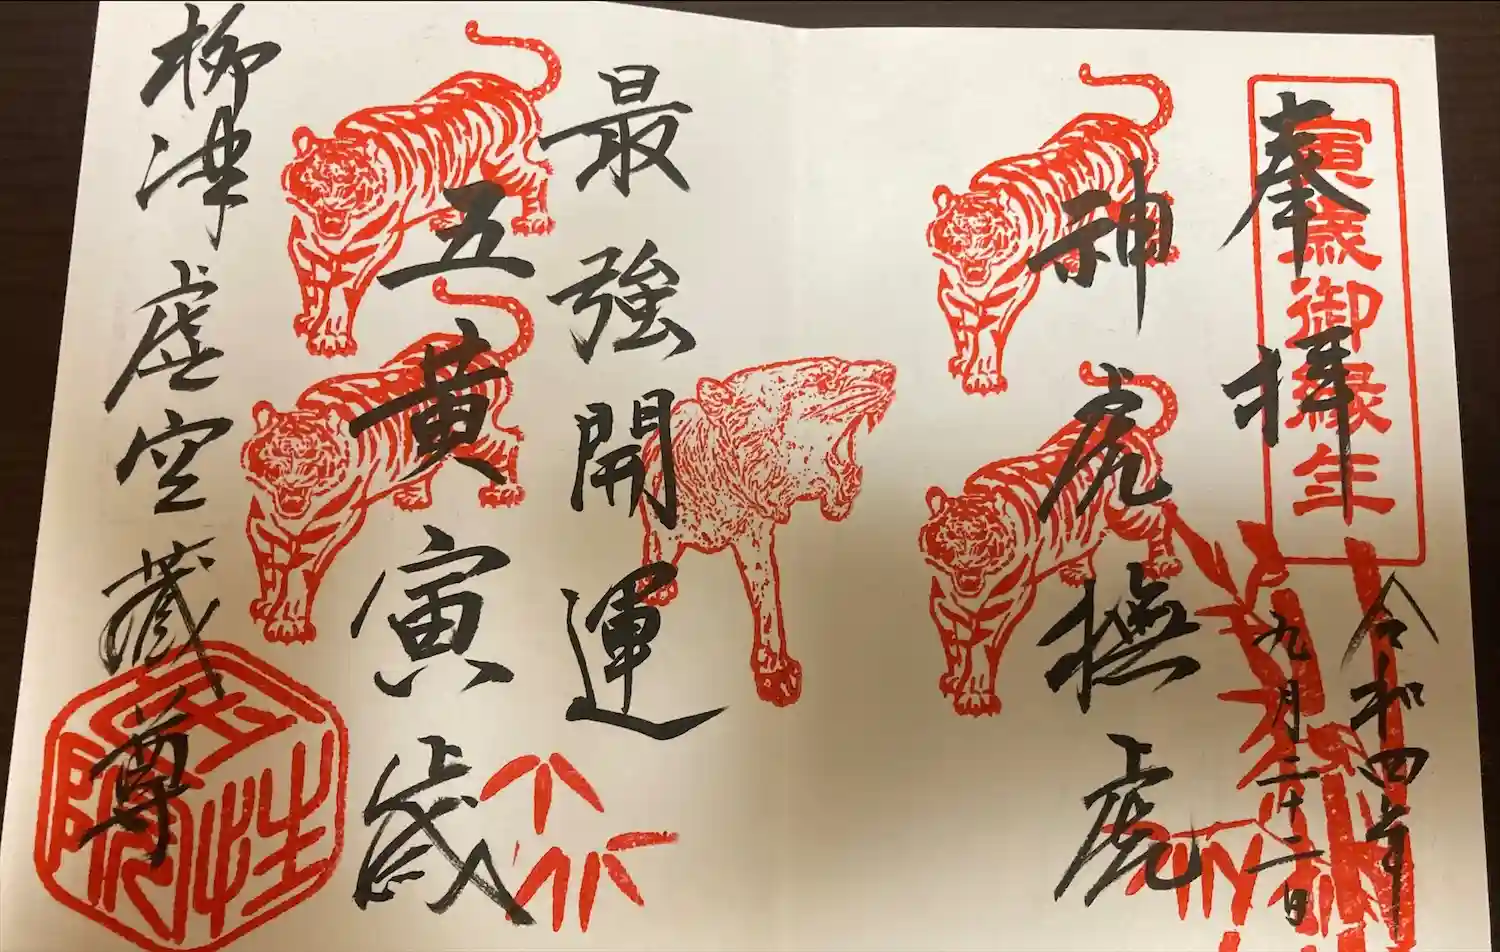 奉拝
寅歳御縁年
令和四年
九月二十二日
神虎撫虎
最強開運
五黄寅歳
柳津虚空蔵尊
宝性院